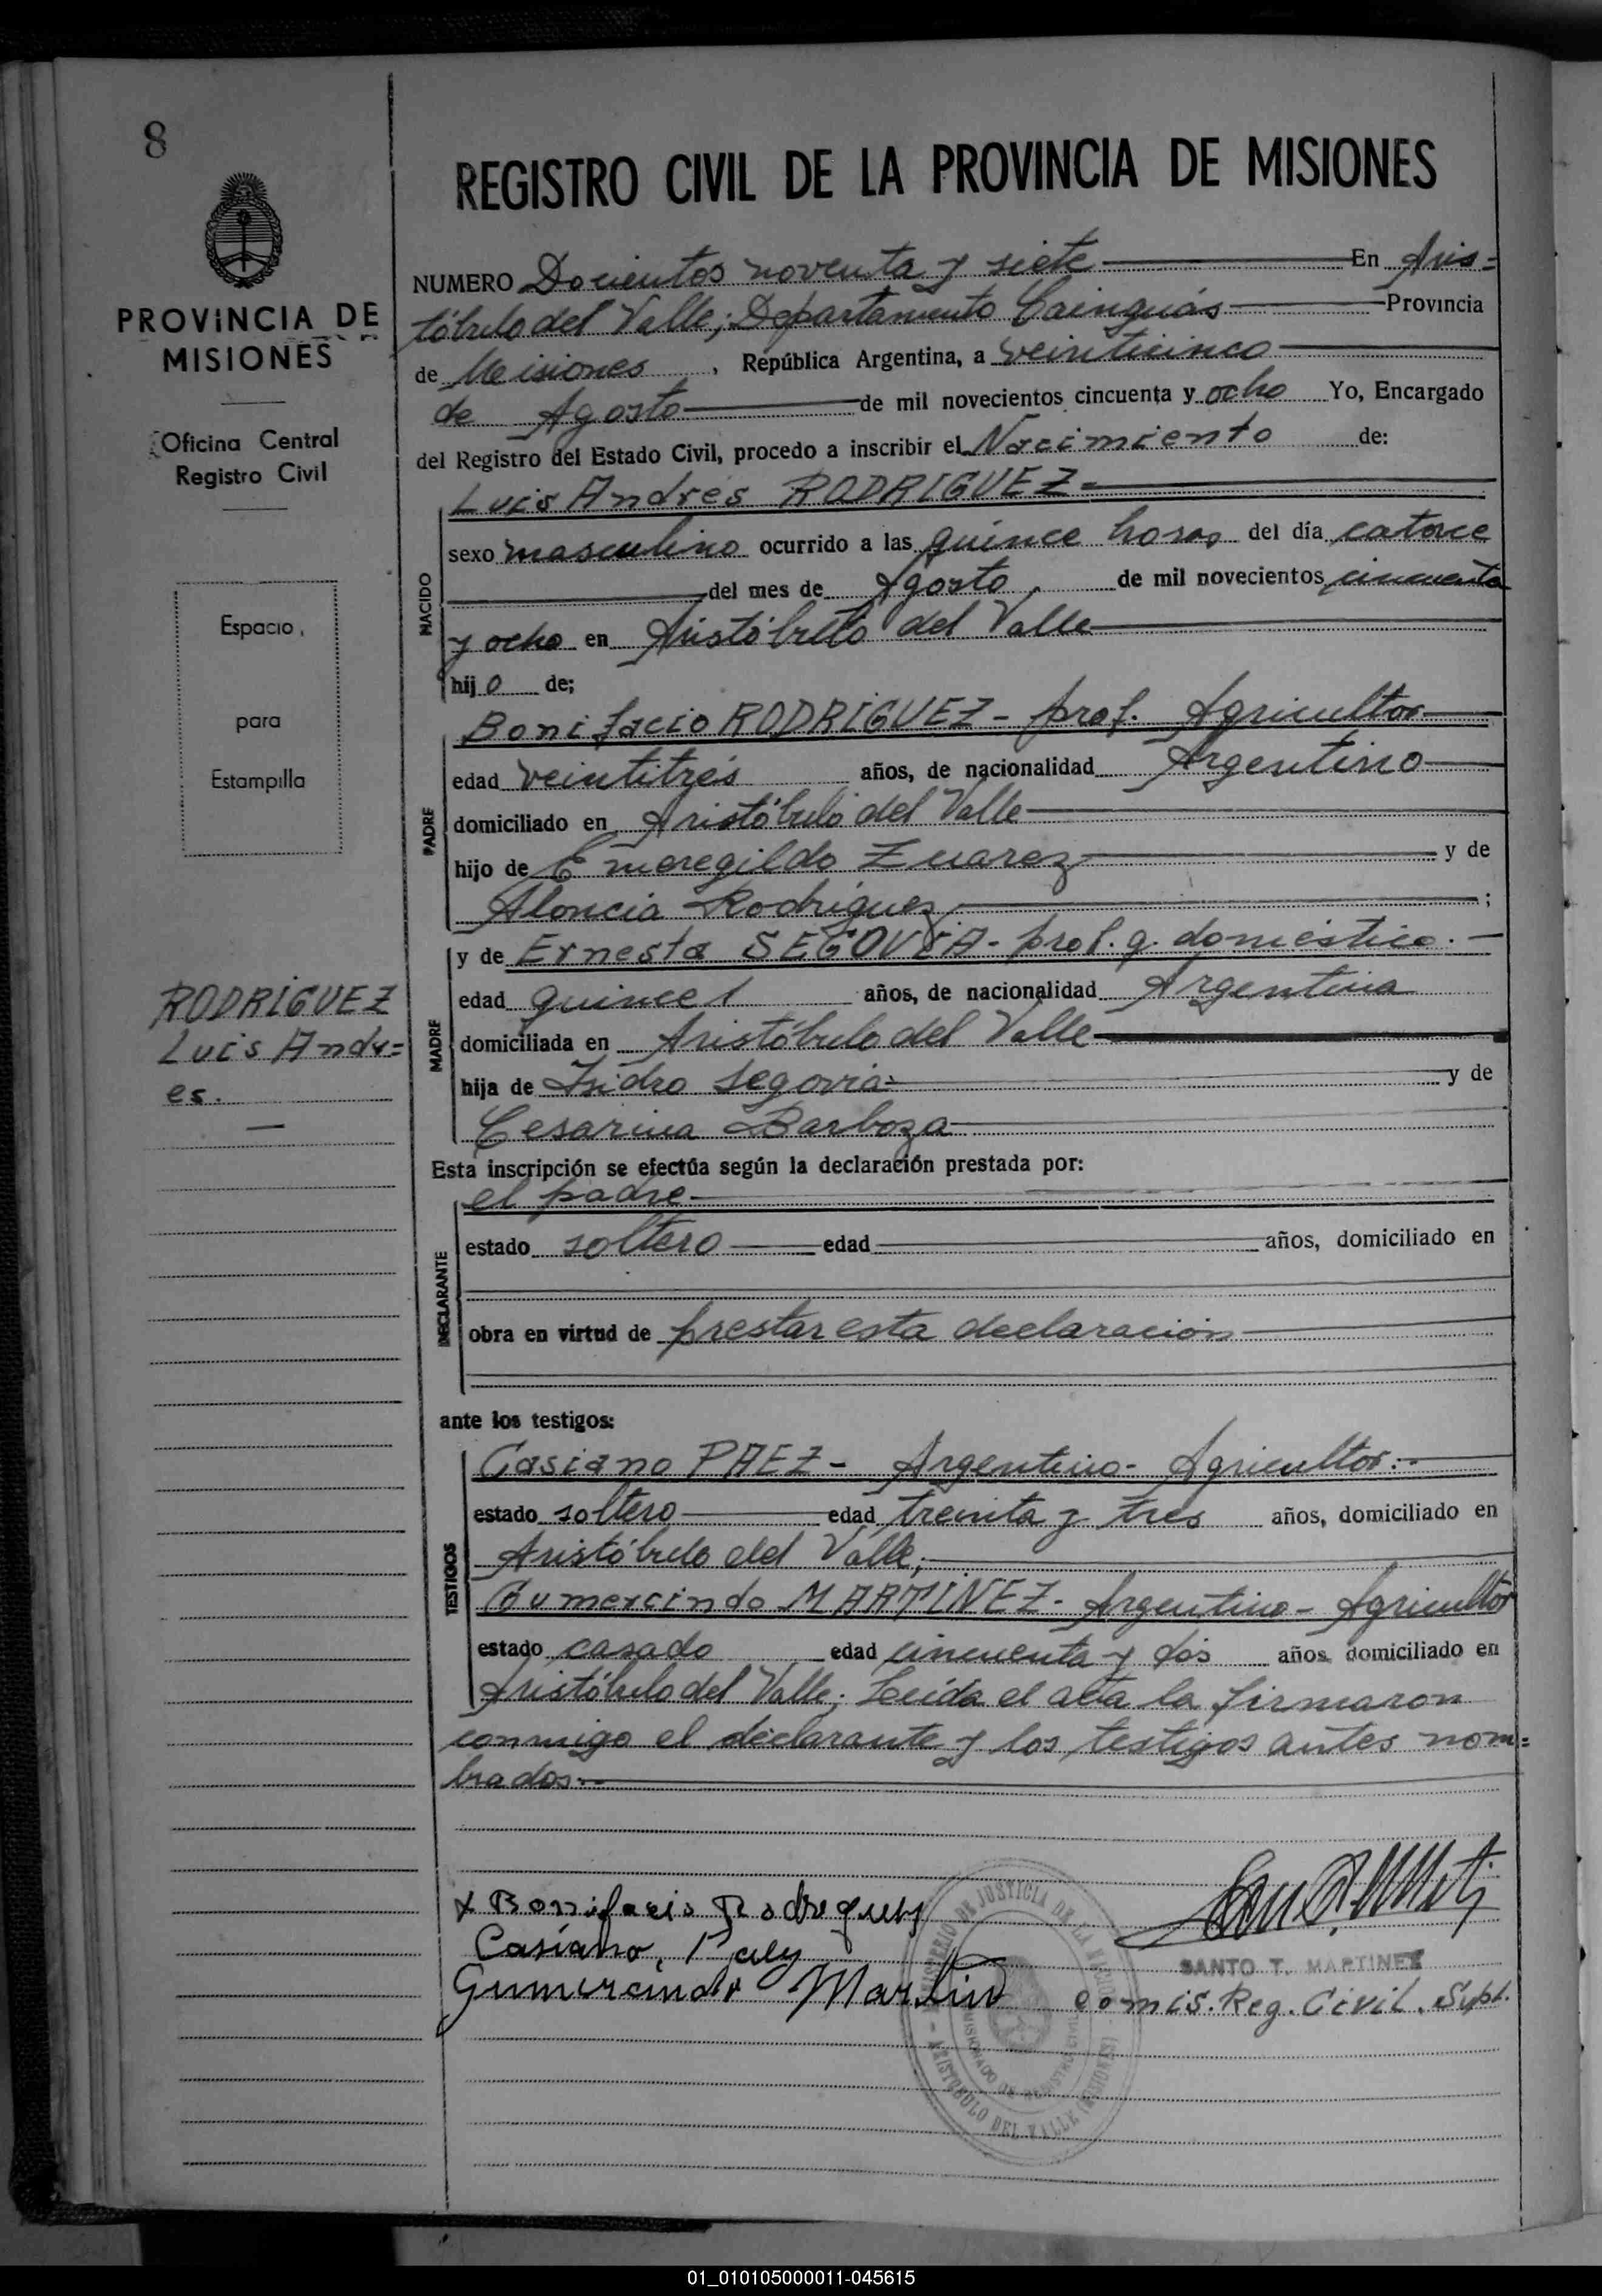 8
PROVINCIA DE
MISIONES
Oficina Central
Registro Civil
Espacio
para
Estampilla
RODRÍGUEZ
Luis Andr=
es.
REGISTRO CIVIL DE LA PROVINCIA DE MISIONES
NUMERO Docientos noventa y siete En Aris=
tóbulo del Valle; Departamento Cainguás Provincia
de Misiones, República Argentina, a veinticinco
de Agosto de mil novecientos cincuenta y ocho Yo, Encargado
del Registro del Estado Civil, procedo a inscribir el Nacimiento de:
Luis Andrés RODRIGUEZ-
NACIDO
sexo masculino ocurrido a las quince horas del día catorce
del mes de Agosto de mil novecientos cincuenta
y ocho en Aristóbulo del Valle
hijo de;
PADRE
Bonifacio RODRÍGUEZ - prof. Agricultor
edad veintitrés años, de nacionalidad Argentino
domiciliado en Aristóbulo del Valle
hijo de Emeregildo Zuarez y de
Aloncia Rodríguez ;
MADRE
y de Ernesta SEGOVIA - prof. q. doméstico.
edad quince años, de nacionalidad Argentina
domiciliada en Aristóbulo del Valle
hija de Isidro Segovia y de
Cesarina Barboza
Esta inscripción se efectúa según la declaración prestada por:
DECLARANTE
el padre
estado soltero edad años, domiciliado en
obra en virtud de prestar esta declaración
ante los testigos:
TESTIGOS
Casiano PAEZ - Argentino - Agricultor.
estado soltero edad treinta y tres años, domiciliado en
Aristóbulo del Valle;
Gumercindo MARTINEZ - Argentino - Agricultor
estado casado edad cincuenta y dos años domiciliado en
Aristóbulo del Valle; Leída el acta la firmaron
conmigo el declarante y los testigos antes nom=
brados.
x Bonifacio Rodreguez
Casiano Paez
Gumercindo Martin
SANTO T. MARTINEZ
Comis. Reg. Civil. Supl.
MINISTERIO DE JUSTICIA DE LA NACION
ARISTOBULO DEL VALLE (MISIONES)
01_010105000011-045615